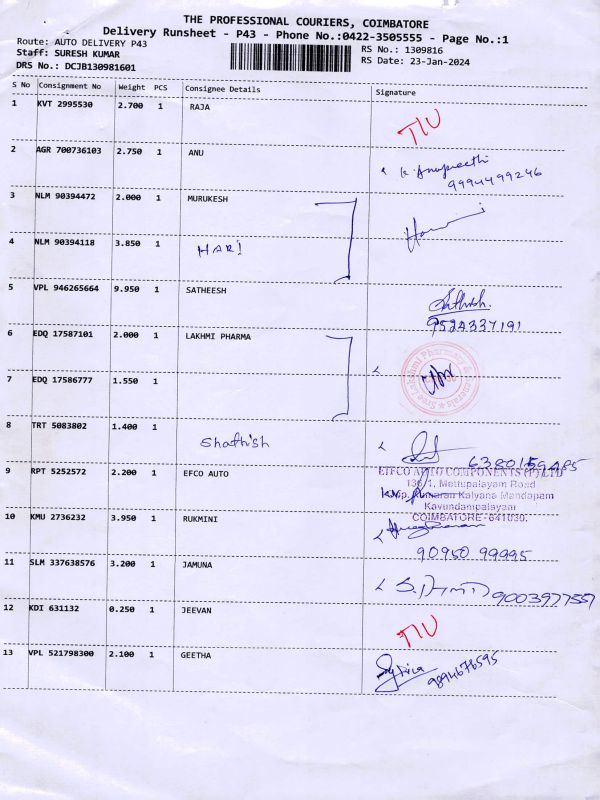 THE PROFESSIONAL COURIERS, COIMBATORE
Delivery Runsheet - P43 - Phone No.:0422-3505555 - Page No.:1
Route: AUTO DELIVERY P43
RS No.: 1309816
Staff: SURESH KUMAR
RS Date: 23-Jan-2024
DRS No.: DCJB130981601
S No Consignment No Weight PCS Consignee Details Signature
1 KVT 2995530 2.700 1 RAJA
TIU
2 AGR 700736103 2.750 1 ANU
K. Anupreethi
9994499246
3 NLM 90394472 2.000 1 MURUKESH
4 NLM 90394118 3.850 1 HARI
5 VPL 946265664 9.950 1 SATHEESH
Sathish.
9524337191
6 EDQ 17587101 2.000 1 LAKHMI PHARMA
7 EDQ 17586777 1.550 1
8 TRT 5083802 1.400 1
Shathish
6380159485
9 RPT 5252572 2.200 1 EFCO AUTO
EIFCO AUTO COMPONENTS (P) LTD
136/1, Mettupalayam Road
Opp. Kumaran Kalyana Mandapam
Kavundampalayam
COIMBATORE-641030.
10 KMU 2736232 3.950 1 RUKMINI
90950 99995
11 SLM 337638576 3.200 1 JAMUNA
9003977557
12 KDI 631132 0.250 1 JEEVAN
TIU
13 VPL 521798300 2.100 1 GEETHA
9894676595